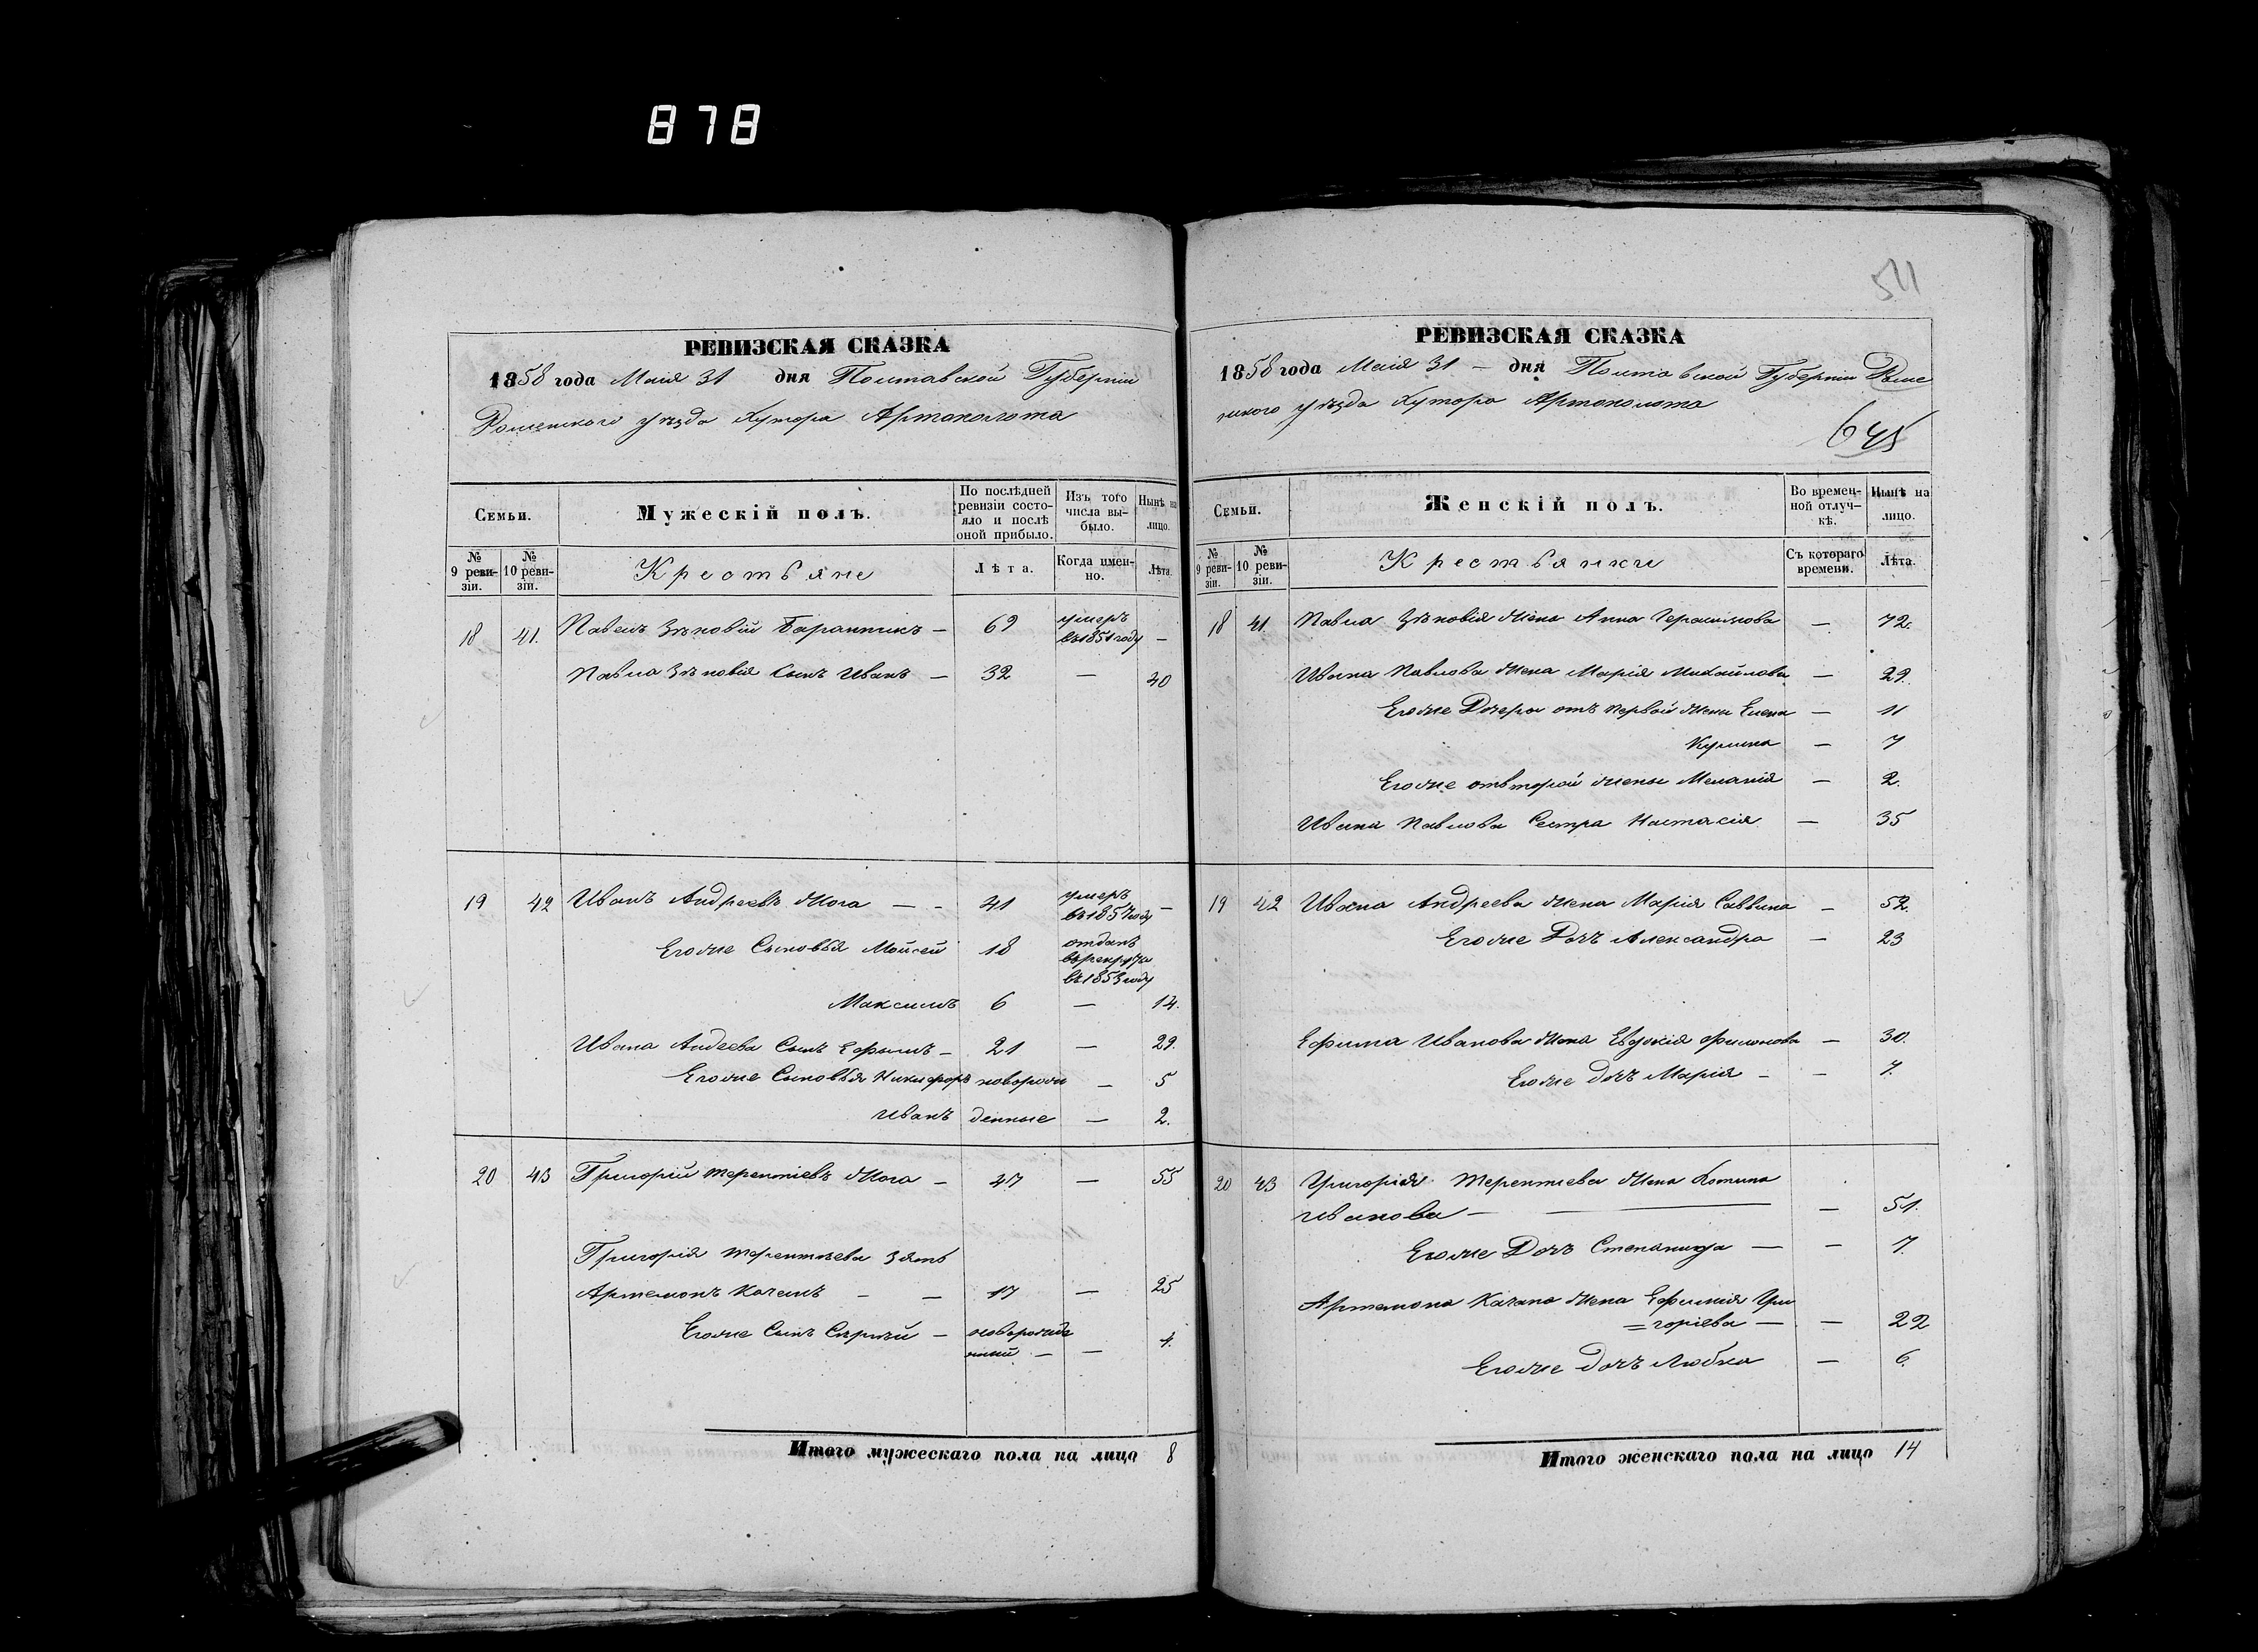 878
511
РЕВИЗСКАЯ СКАЗКА
1858 года Маія 31 дня Полтавской Губерніи
Роменского уѣзда Хутора Артополота
Семьи.
Мужескій полъ.
По послѣдней ревизіи состояло и послѣ оной прибыло.
Изъ того числа выбыло.
Нынѣ на лицо.
№ 9 ревизіи.
№ 10 ревизіи.
Крестьяне
Лѣта.
Когда именно.
Лѣта.
18 41. Павелъ Зѣновій Баранникъ — 69 умеръ въ 1851 году —
Павла Зѣновія Сынъ Иванъ — 32 — 40
19 42 Иванъ Андреевъ Мога — - 41 умеръ въ 1857 году —
Егоже Сыновья Мойсей 18 отданъ въ рекруты въ 1853 году
Максимъ 6 — 14.
Ивана Андеева Сынъ Ефимъ — 21 — 29.
Егоже Сыновья Никифоръ новорож — 5
Иванъ денные — 2.
20 43 Григорій Терентіевъ Мога — 47 — 55
Григорія Терентіева Зять
Артемонъ Качанъ — — 17 — 25
Егоже Сынъ Сергѣй — новорожде
нный — — 4.
Итого мужескаго пола на лицо 8
РЕВИЗСКАЯ СКАЗКА
1858 года Маія 31 — дня Полтавской Губерніи Роме
нского уѣзда Хутора Артополота
645
Семьи.
Женскій полъ.
Во временной отлучкѣ.
Нынѣ на лицо.
№ 9 ревизіи.
№ 10 ревизіи.
Крестьянки
Съ котораго времени.
Лѣта.
18 41. Павла Зѣновія Жена Анна Герасимова — 72.
Ивана Павлова Жена Марія Михайлова — 29.
Егоже Дочери отъ первой Жены Елена — 11
Кулина — 7
Егоже отвторой жены Меланія — 2.
Ивана Павлова Сестра Настасія — 35
19 42 Ивана Андреева жена Марія Саввина — 52.
Егоже Дочь Александра — 23
Ефима Иванова Жена Евдокія Филимонова — 30.
Егоже дочь Марія — — 7.
20 43 Григорія Терентиева Жена Хотина
Иванова — — — 51.
Егоже Дочь Степанида — — 7.
Артемона Качана Жена Ефимія Гри
=горіева — — 22
Егоже дочь Любка — 6.
Итого женскаго пола на лицо 14